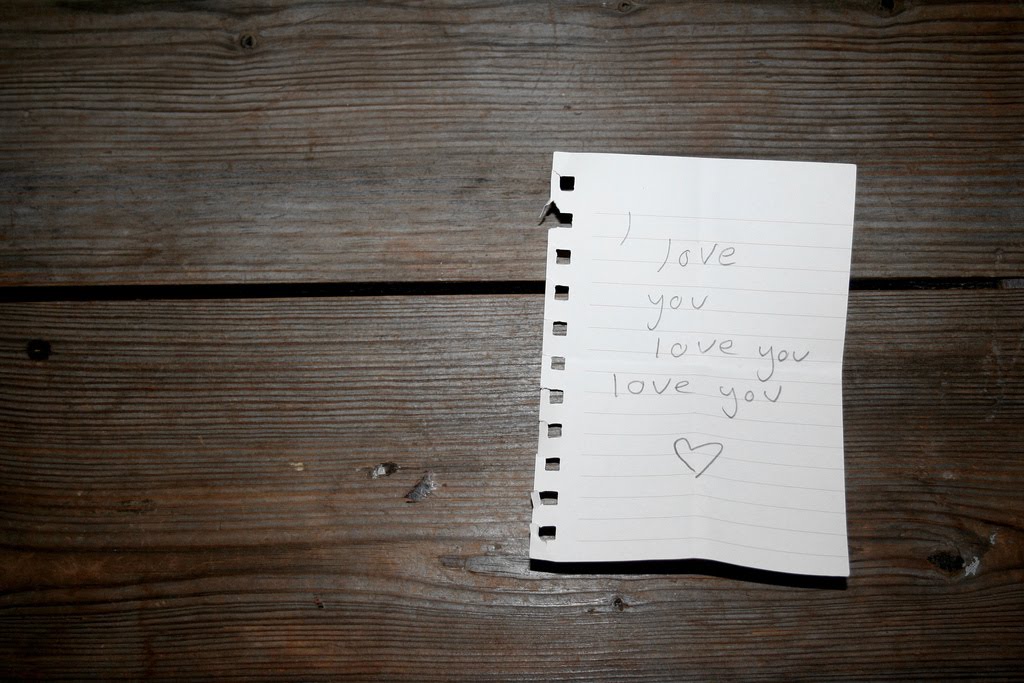 I
love
you
love you
love you